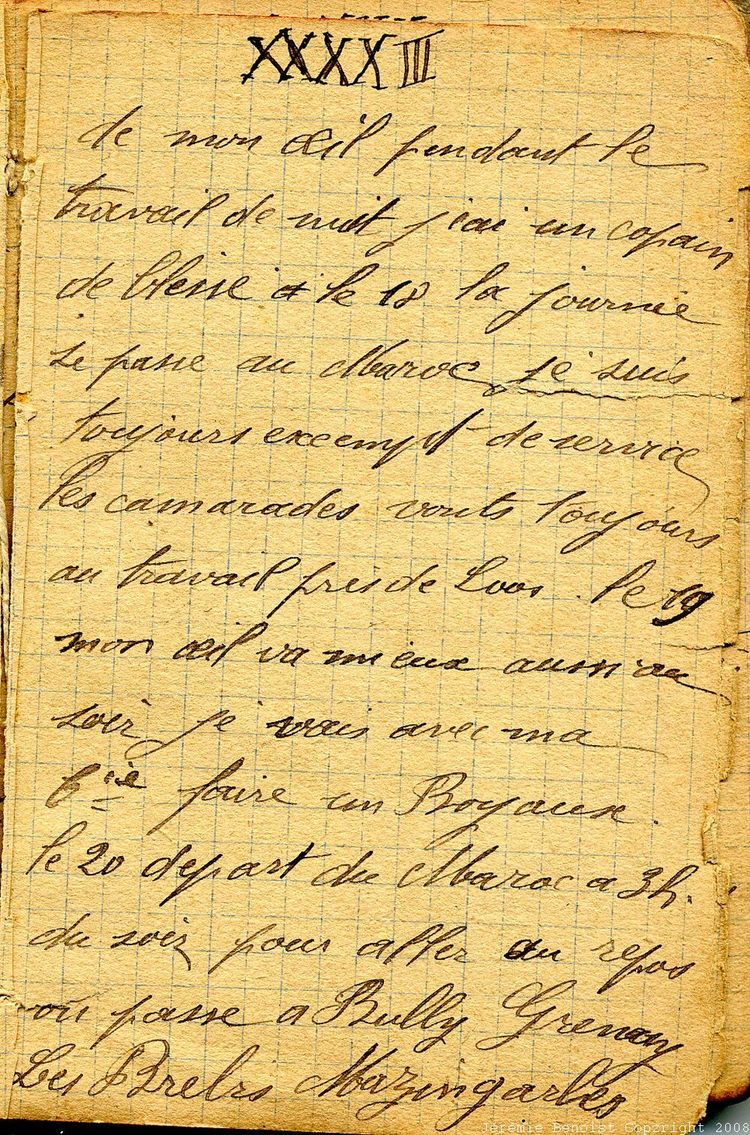 XXXXIII
de mon œil pendant le
travail de nuit j'ai un copain
de blesse le 18 la journée
se passe au Maroc, je suis
toujours exempt de service
les camarades vonts toujours
au travail près de Loos. le 19
mon œil va mieux aussi au
soir je vais avec ma
Cie faire un Boyaux.
le 20 départ du Maroc a 3h.
du soir pour aller au repos
on passe a Bully Grenay
Les Brebis Mazingarbes
Jeremie Benoist Copyright 2008